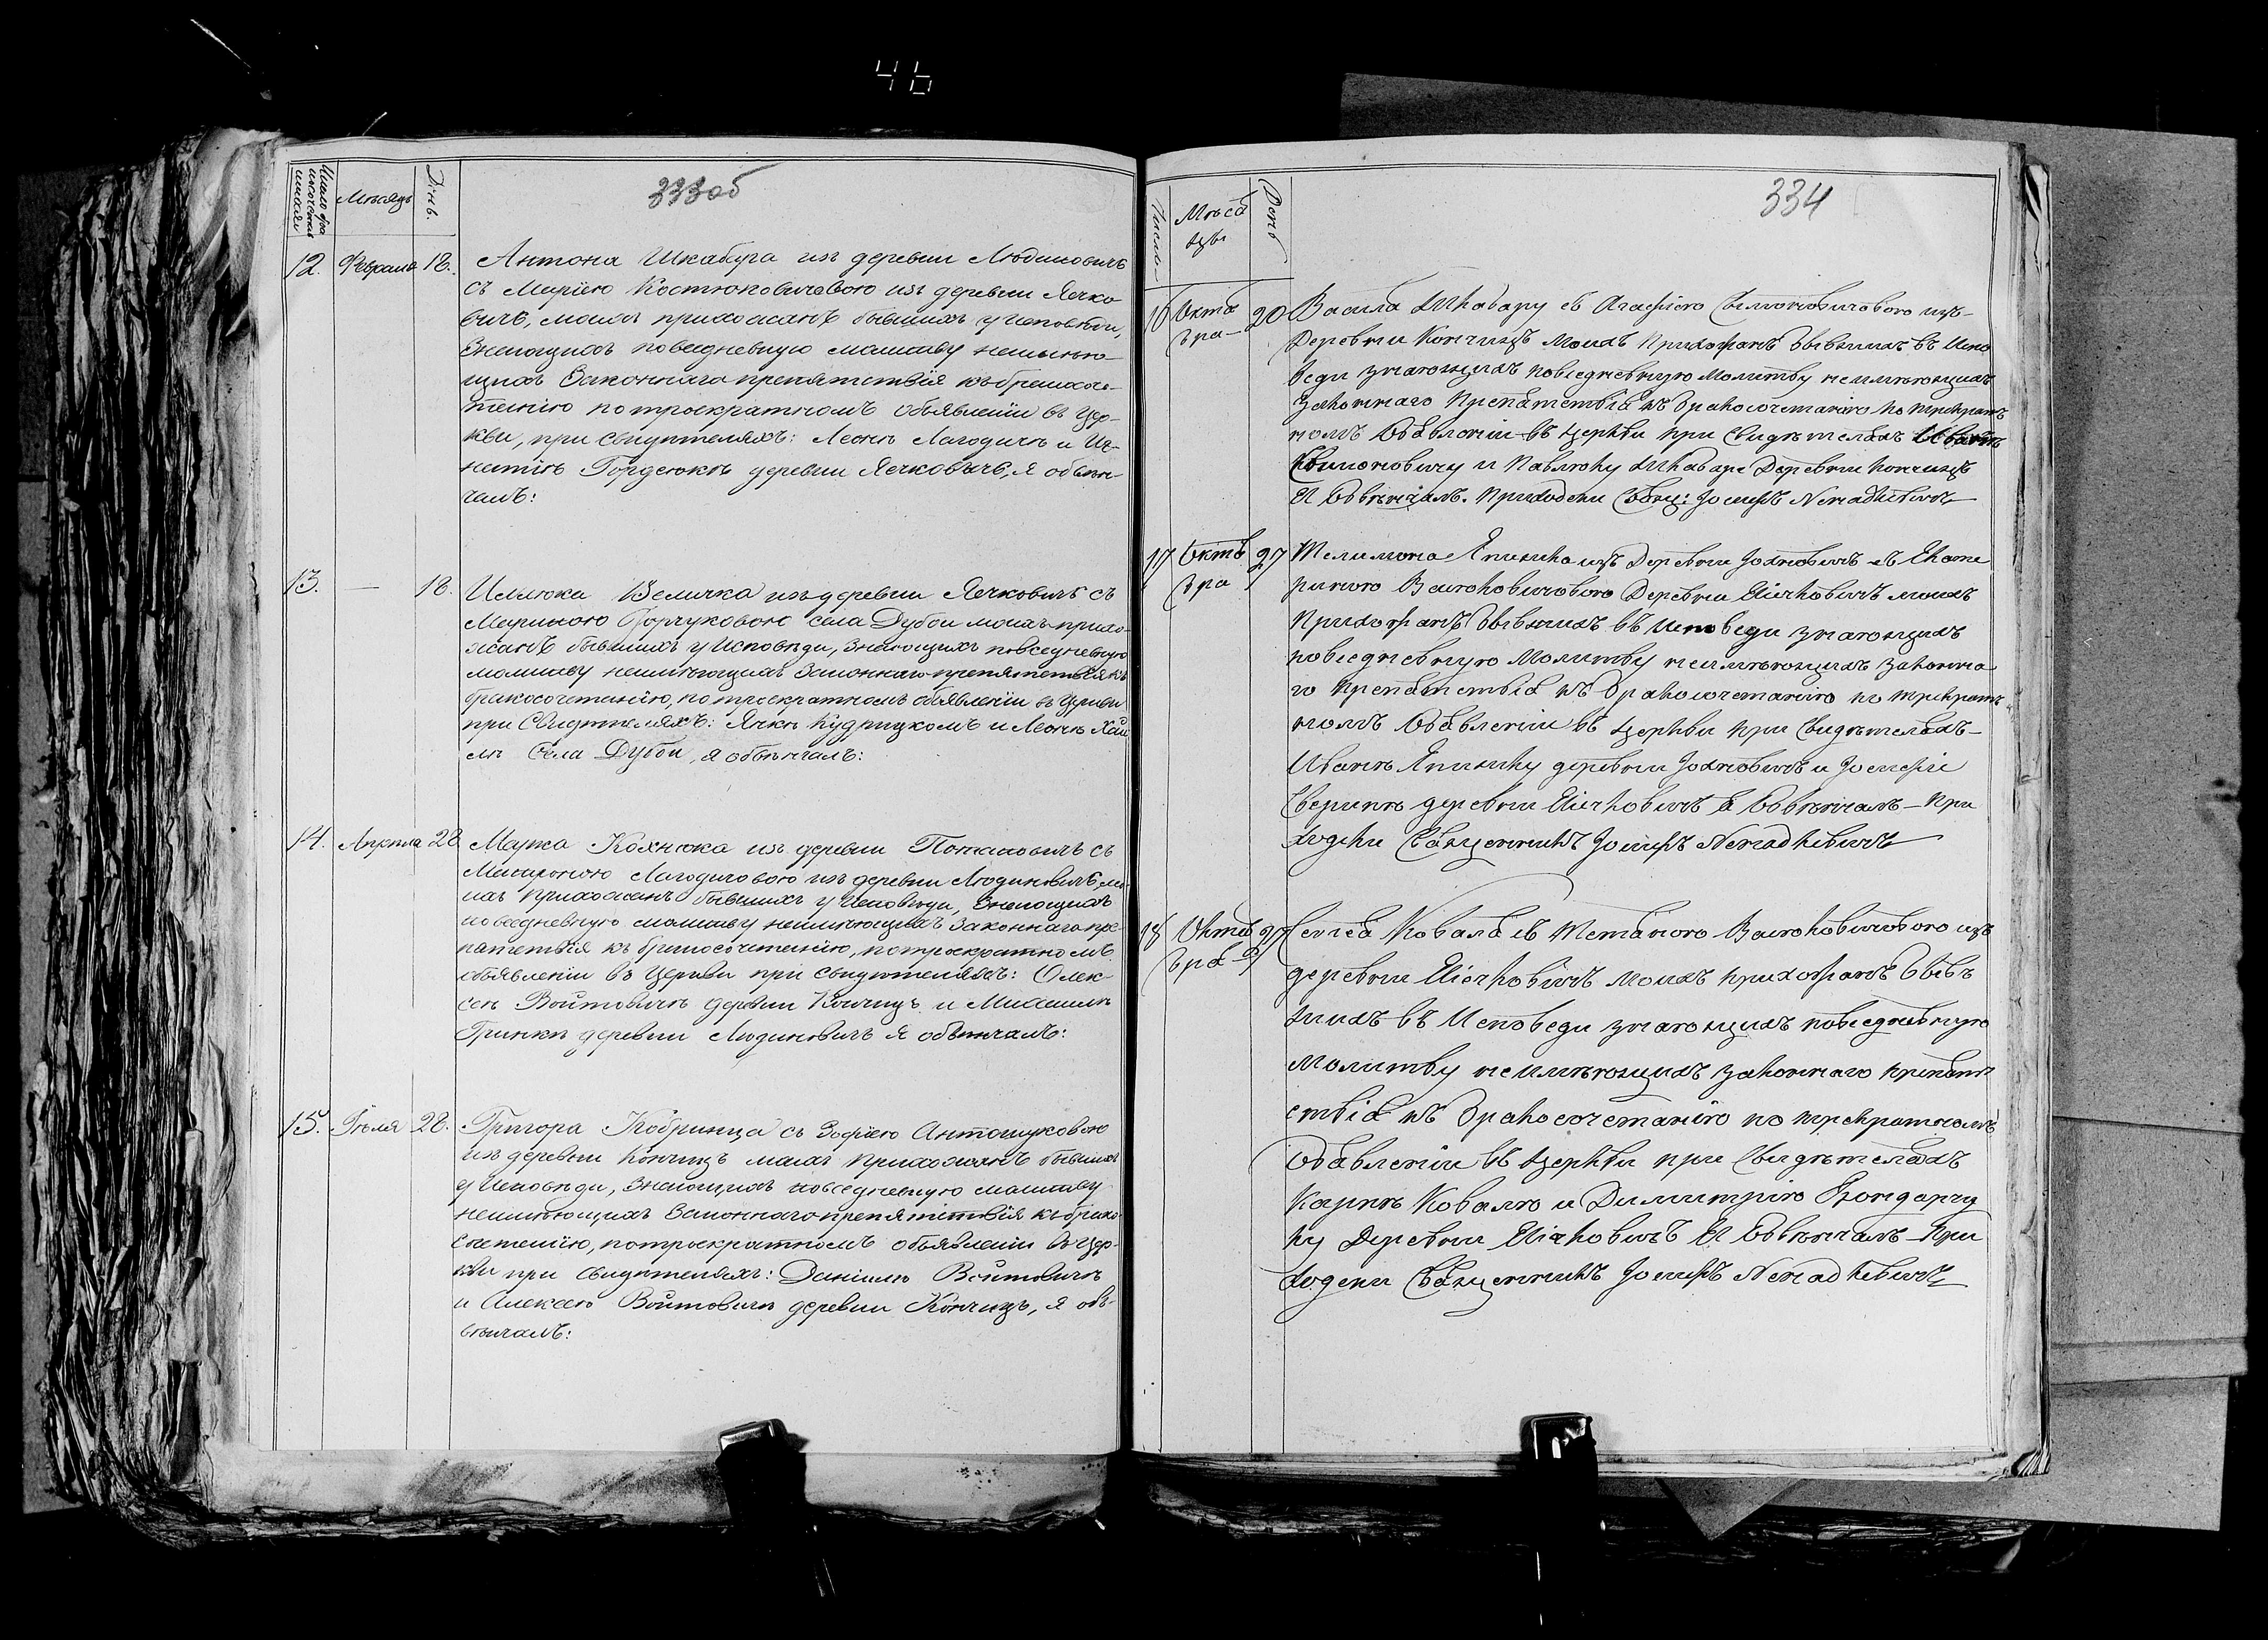 46
333об
Число бра
косочетав
шихся
Мѣсяцъ
День.
12. Февраля 18. Антона Шкабура изъ деревни Людиновичъ
съ Маріею Костюковичовою изъ деревни Ячко
вичъ, моихъ прихожанъ бывшихъ у исповѣди,
Знающихъ повседневную молитву неимѣю-
щихъ Законнаго препятствія къ бракосоче-
танію по троекратномъ объявленіи въ Цер-
кви, при свидѣтеляхъ: Леонѣ Лагодичѣ и Иг-
натіѣ Гордеюкѣ деревни Ячковичъ, я обвѣн-
чалъ:
13. — 18. Велички изъ деревни Ячковичъ съ
Мариною села Дубои моихъ прихо-
жанъ бывшихъ у Исповѣди, Знающихъ повседневную
молитву неимѣющихъ Законнаго препятствія къ
бракосочетанію, по троекратномъ объявленіи въ Церкви
при Свидѣтеляхъ: Яскѣ Кудрицкомъ и Леонѣ
села Дубои, я обвѣнчалъ:
14. Апрѣля 28 Марка Кохнюка изъ деревни Потаповичъ съ
Лагодичовою изъ деревни Людиновичъ, мо
ихъ прихожанъ бывшихъ у Исповѣди, Знающихъ
повседневную молитву неимѣющихъ Законнаго пре
пятствія къ бракосочетанію, по троекратномъ
объявленіи въ Церкви при свидѣтеляхъ: Олек
сеѣ Войтовичѣ деревни Кончицъ и Михаилѣ
Гринкѣ деревни Людиновичъ я обвѣнчалъ:
15. Іюля 28. Григора Кобринца съ Зофіею Антонюковою
изъ деревни Кончицъ моихъ прихожанъ бывшихъ
у Исповѣди, Знающихъ повседневную молитву
неимѣющихъ Законнаго препятствія къ брако
сочетанію, по троекратномъ объявленіи въ Цер-
кви при свидѣтеляхъ: Даніилѣ Войтовичѣ
и Алексею Войтовичѣ деревни Кончицъ, я об-
вѣнчалъ:
334
Число
Мѣся
цы
День
16 Октя
бра— 20 Василя Шкабару съ Агафіею Симоновичовою изъ
Деревни Кончицъ моихъ прихожанъ бывшихъ въ Испо
веди знающихъ повседневную молитву неимѣющихъ
законнаго препятствія къ бракосочетанію по трикрат
номъ Объявленіи въ церкви при Свидѣтеляхъ
Симоновичу и Павлюку Шкабаре Деревни Кончицъ
Я Обвѣнчалъ. Приходски Свящ: Іосифъ Ненадкевичъ
17 Октя
бра 27 Филимона Япишка изъ Деревни Іохновичъ съ Екате
риною Велюковичовою Деревни Ячковичъ моихъ
прихожанъ бывшихъ въ Исповеди знающихъ
повседневную Молитву неимѣющихъ законна
го препятствія къ бракосочетанію по трикрат
номъ Объявленіи въ церкви при Свидѣтеляхъ—
Иванѣ Япишку деревни Іохновичъ и Іосифіе
Сверинѣ деревни Ячковичъ я Обвѣнчалъ— При
ходски Священникъ Іосифъ Ненадкевичъ
18 Октя
бра— 27 Сергея Коваля съ Стефаніею Велюковичовою изъ
деревни Ячковичъ моихъ прихожанъ бывъ
шихъ въ Исповеди знающихъ повседневную
молитву неимѣющихъ законнаго препят
ствія къ бракосочетанію по трекратномъ
Объявленіи въ Церкви при Свидѣтеляхъ
Ковалю и Димитрію Бондарчу
ку Деревни Ячковичъ Я Обвѣнчалъ При
ходски Священникъ Іосифъ Ненадкевичъ